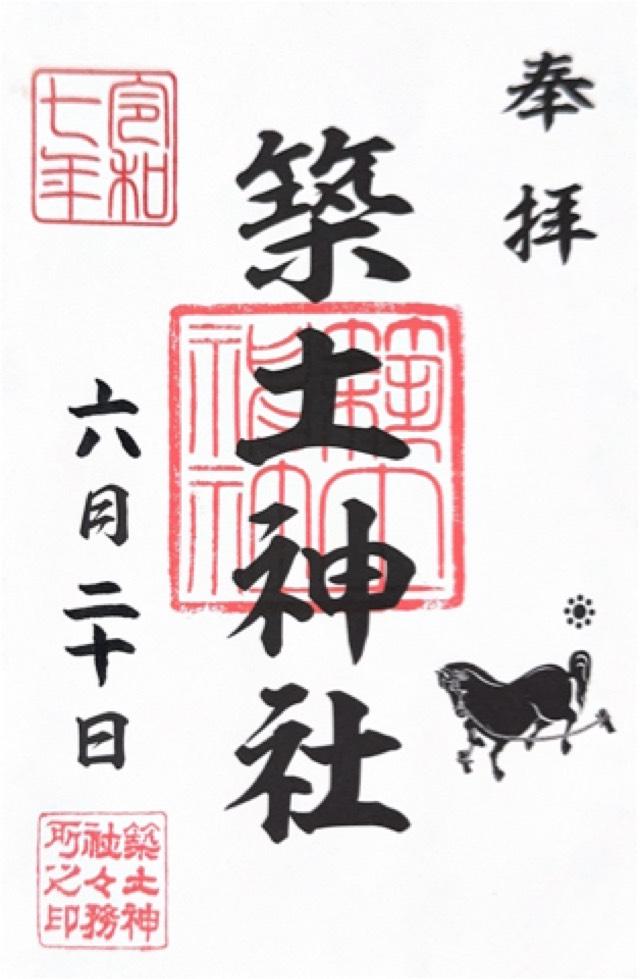 奉拝
築土神社
築土神社
令和七年
六月二十日
築土神社々務所之印